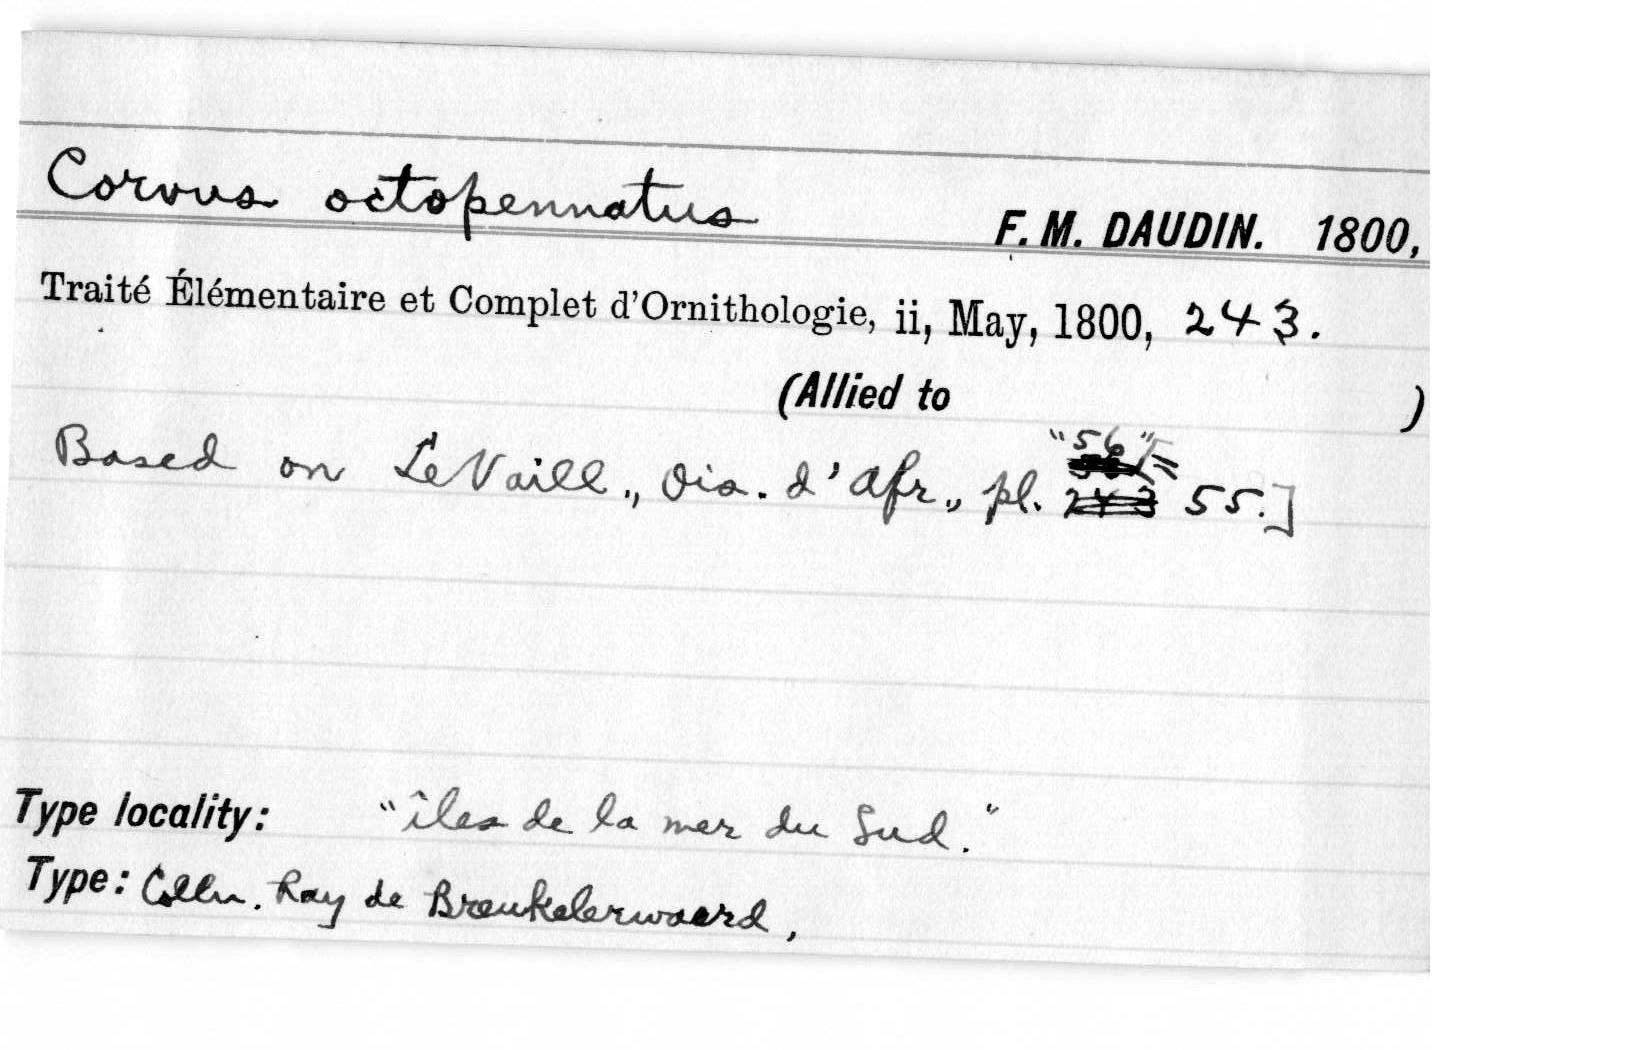 Corvus octopennatus F. M. DAUDIN. 1800,
Traité Élémentaire et Complet d'Ornithologie, ii, May, 1800, 243.
(Allied to )
"56" [=
Based on LeVaill., Ois. d'Afr., pl. 243 55.]
Type locality: "îles de la mer du Sud."
Type: Colln. Ray de Breukelerwaard,